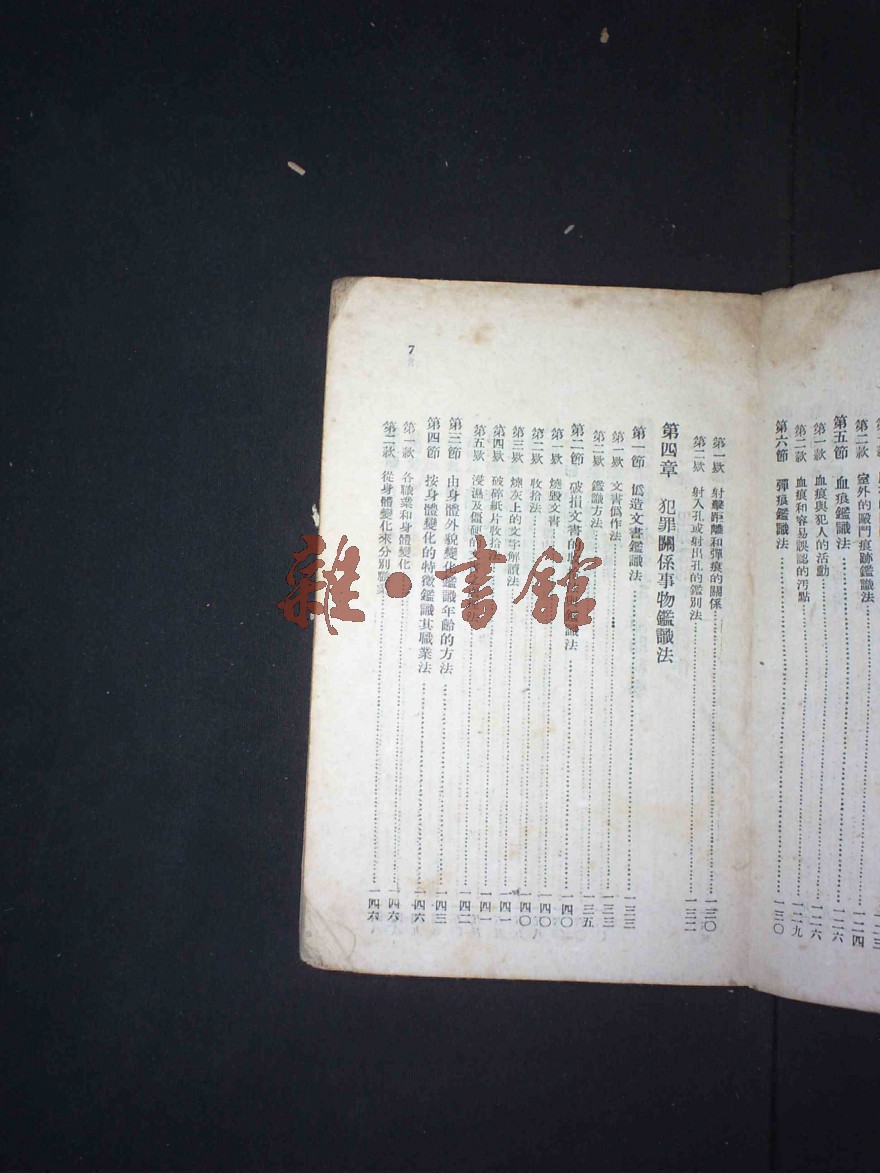 室外的毆鬥痕跡鑑識法……一二四
第五節 血痕鑑識法……一二六
第一款 血痕與犯人的活動……一二六
第二款 血痕和容易誤認的汚點……一二九
第六節 彈痕鑑識法……一三〇
7
第一欵 射擊距離和彈痕的關係……一三〇
第二欵 射入孔或射出孔的鑑別法……一三二
第四章 犯罪關係事物鑑識法
第一節 僞造文書鑑識法……一三三
第一欵 文書僞作法……一三三
第二欵 鑑識方法……一三五
第二節 破損文書的 法……一四〇
第一欵 燒毀文書……一四〇
第二欵 收拾法……一四〇
第三欵 煉灰上的文字解讀法……一四一
第四欵 破碎紙片收拾……一四一
第五欵 浸濕及僵硬的……一四二
第三節 由身體外貌變化鑑識年齡的方法……一四三
第四節 按身體變化的特徵鑑識其職業法……一四六
第一款 各職業和身體變化……一四六
第二款 從身體變化來分別職業……一四六
雜·書館